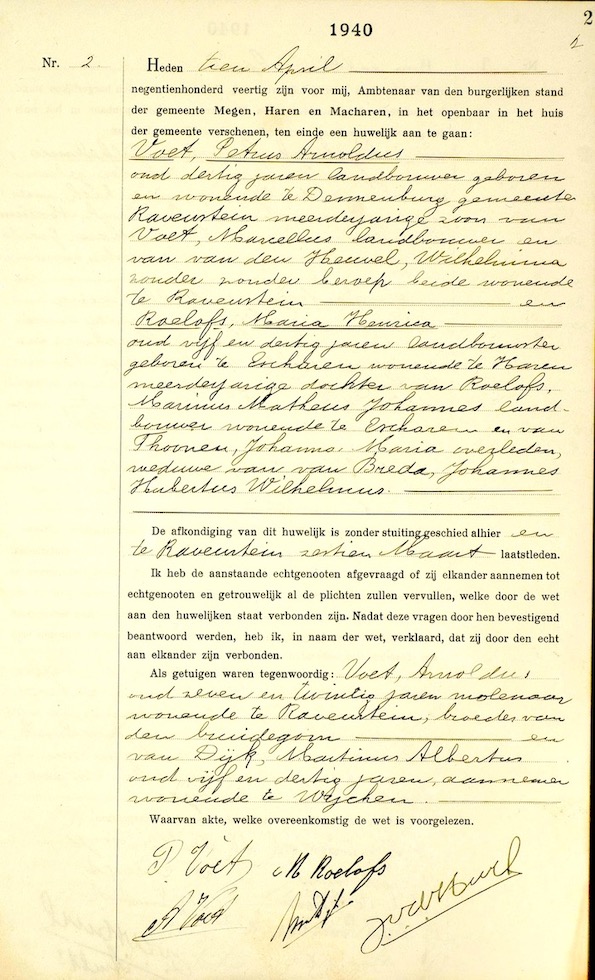 2
1940
2
Nr. 2.
Heden tien April
negentienhonderd veertig zijn voor mij, Ambtenaar van den burgerlijken stand
der gemeente Megen, Haren en Macharen, in het openbaar in het huis
der gemeente verschenen, ten einde een huwelijk aan te gaan:
Voet, Petrus Arnoldus
oud dertig jaren landbouwer geboren
en wonende te Dennenburg gemeente
Ravenstein meerderjarige zoon van
Voet, Marcellus landbouwer en
van van den Heuvel, Wilhelmina
zonder zonder beroep beide wonende
te Ravenstein en
Roelofs, Maria Henrica
oud vijf en dertig jaren landbouwster
geboren te Escharen wonende te Haren
meerderjarige dochter van Roelofs,
Marinus Matheus Johannes land-
bouwer wonende te Escharen en van
Thoonen, Johanna Maria overleden,
weduwe van van Breda, Johannes
Hubertus Wilhelmus.
De afkondiging van dit huwelijk is zonder stuiting geschied alhier en
te Ravenstein zestien Maart laatstleden.
Ik heb de aanstaande echtgenooten afgevraagd of zij elkander aannemen tot
echtgenooten en getrouwelijk al de plichten zullen vervullen, welke door de wet
aan den huwelijken staat verbonden zijn. Nadat deze vragen door hen bevestigend
beantwoord werden, heb ik, in naam der wet, verklaard, dat zij door den echt
aan elkander zijn verbonden.
Als getuigen waren tegenwoordig: Voet, Arnoldus
oud zeven en twintig jaren molenaar
wonende te Ravenstein, broeder van
den bruidegom en
van Dijk, Martinus Albertus
oud vijf en dertig jaren, aannemer
wonende te Wijchen.
Waarvan akte, welke overeenkomstig de wet is voorgelezen.
P. Voet M Roelofs
A Voet